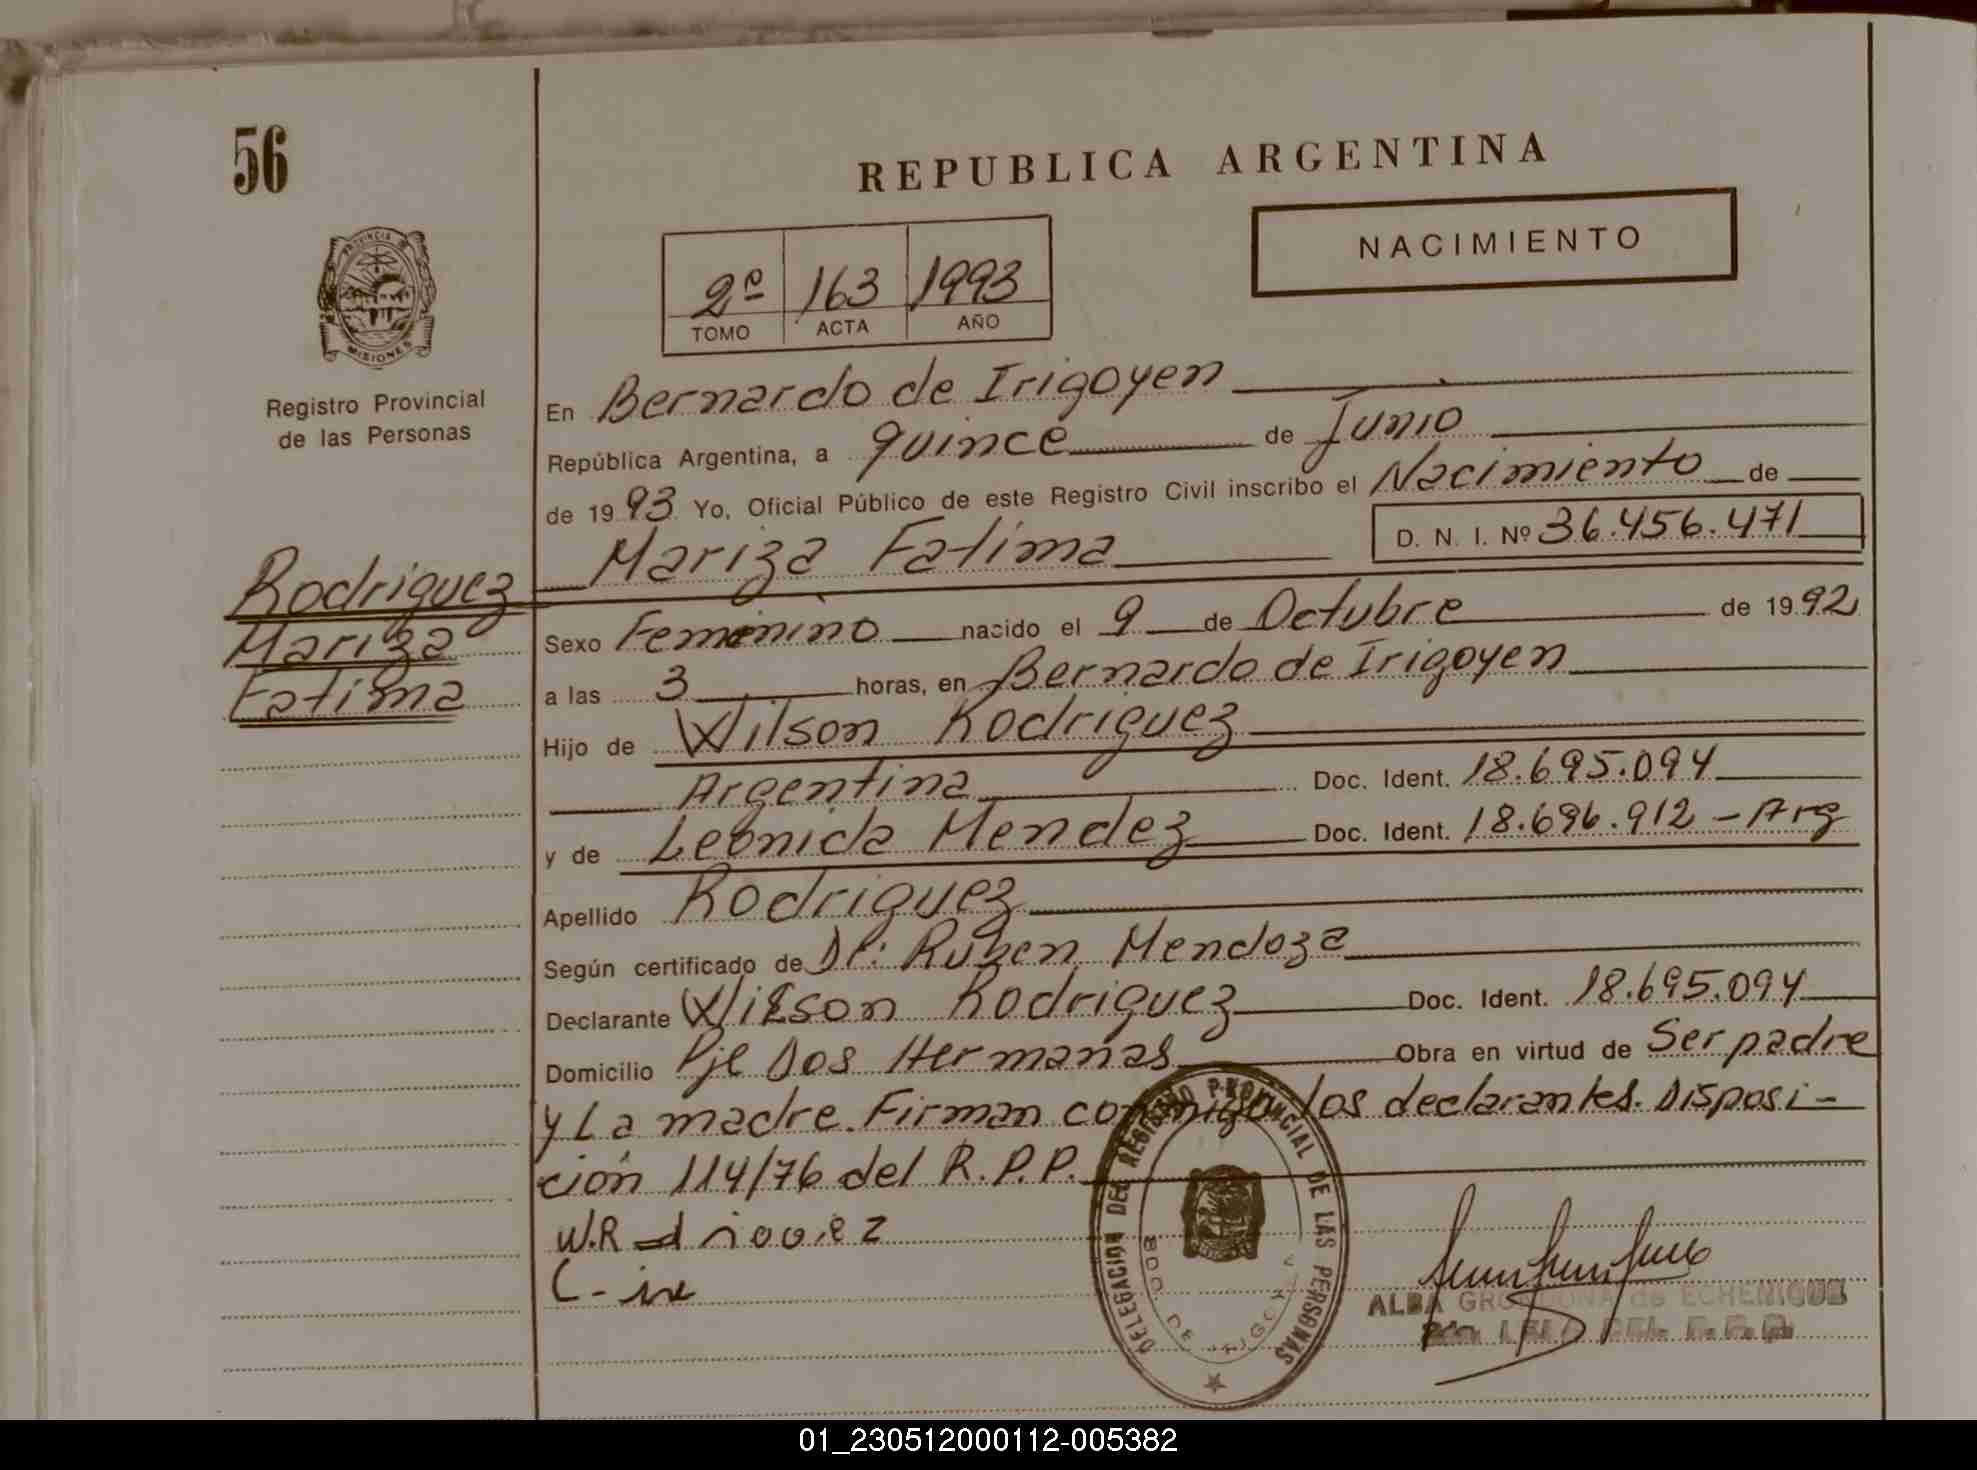 56
REPUBLICA ARGENTINA
NACIMIENTO
2º 163 1993
TOMO ACTA AÑO
PROVINCIA DE
MISIONES
Registro Provincial
de las Personas
En Bernardo de Irigoyen
República Argentina, a quince de Junio
de 1993 Yo, Oficial Público de este Registro Civil inscribo el Nacimiento de
D. N. I. Nº 36.456.471
Mariza Fatima
Rodriguez
Mariza
Fatima
Sexo Femenino nacido el 9 de Octubre de 1992
a las 3 horas, en Bernardo de Irigoyen
Hijo de Wilson Rodriguez
Argentina Doc. Ident. 18.695.094
y de Leonida Mendez Doc. Ident. 18.696.912 - Arg
Apellido Rodriguez
Según certificado de Dr: Ruben Mendoza
Declarante Wilson Rodriguez Doc. Ident. 18.695.094
Domicilio Pje Dos Hermanas Obra en virtud de Ser padre
y La madre. Firman conmigo los declarantes. Disposi-
ción 114/76 del R.P.P.
DELEGACION DEL REGISTRO PROVINCIAL DE LAS PERSONAS
BDO DE IRIGOYEN
ALBA de ECHENIQUE
01_230512000112-005382